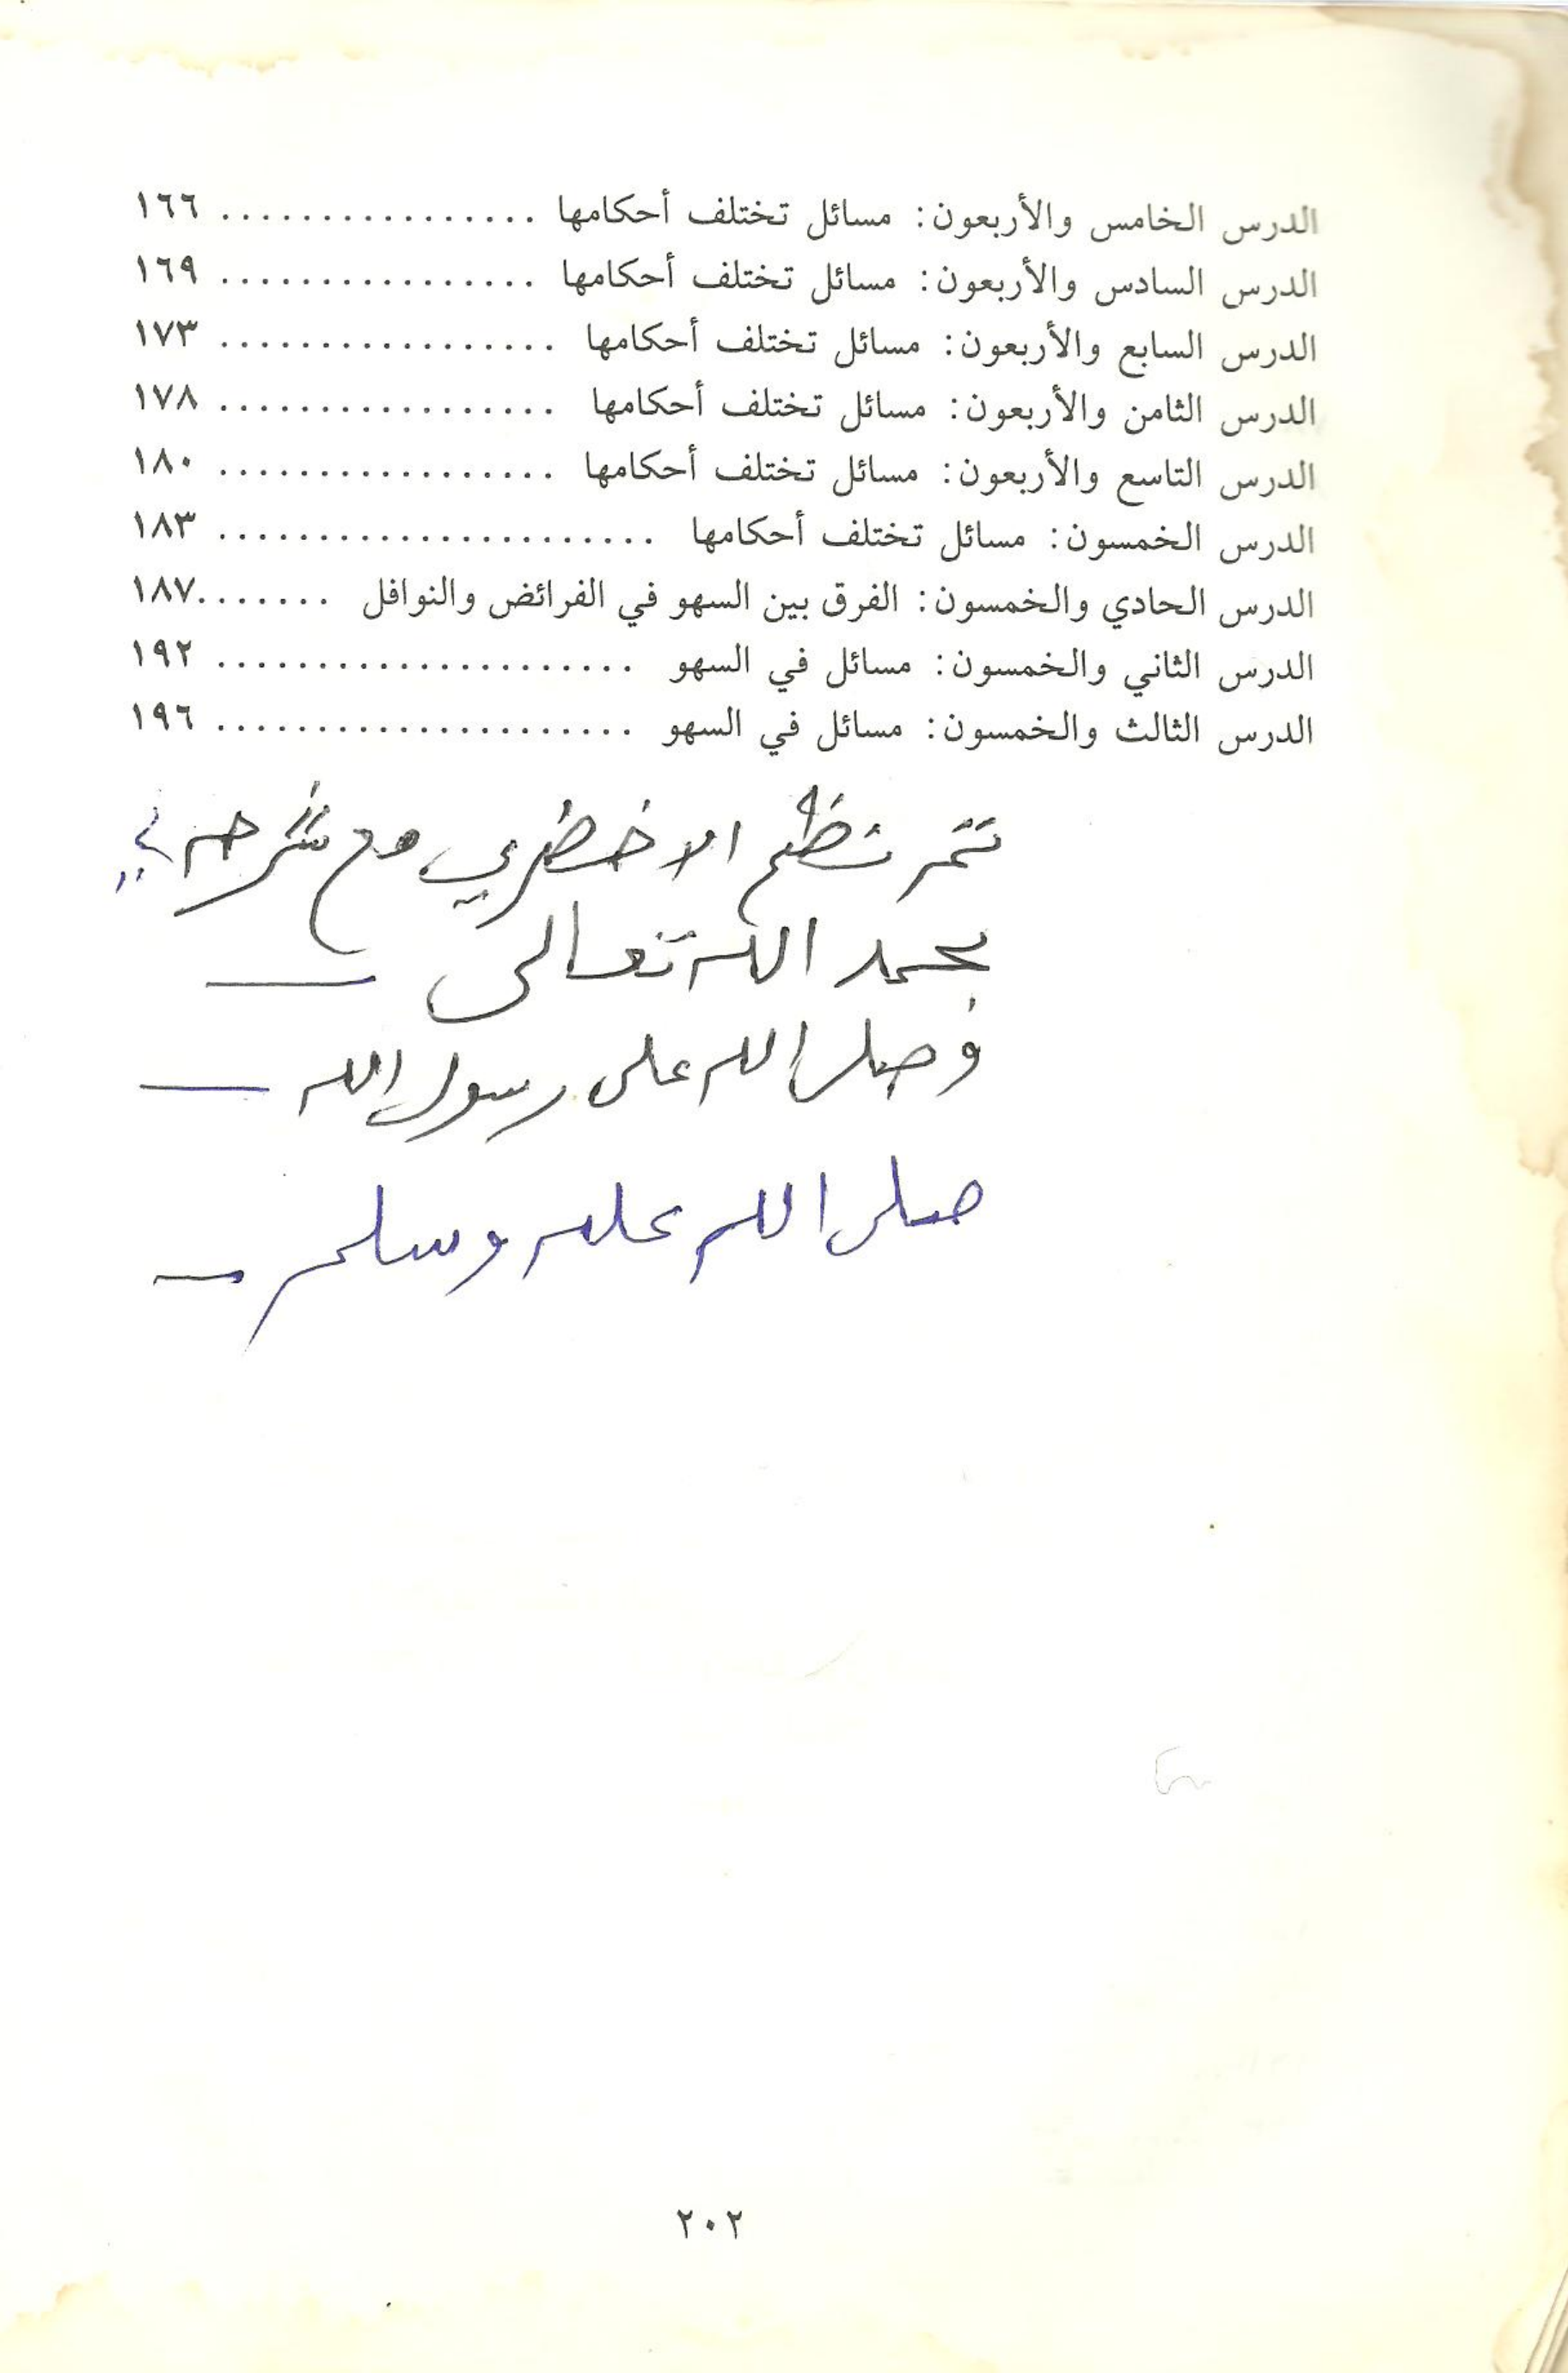 الدرس الخامس والأربعون: مسائل تختلف أحكامها ................ ١٦٦
الدرس السادس والأربعون: مسائل تختلف أحكامها ................ ١٦٩
الدرس السابع والأربعون: مسائل تختلف أحكامها ................. ١٧٣
الدرس الثامن والأربعون: مسائل تختلف أحكامها ................. ١٧٨
الدرس التاسع والأربعون: مسائل تختلف أحكامها ................. ١٨٠
الدرس الخمسون: مسائل تختلف أحكامها ...................... ١٨٣
الدرس الحادي والخمسون: الفرق بين السهو في الفرائض والنوافل .......١٨٧
الدرس الثاني والخمسون: مسائل في السهو ..................... ١٩٢
الدرس الثالث والخمسون: مسائل في السهو ..................... ١٩٦
تم نظم الاخضري مع شرحه
بحمد الله تعالى
وصلى الله على رسول الله
صلى الله عليه وسلم
٢٠٢